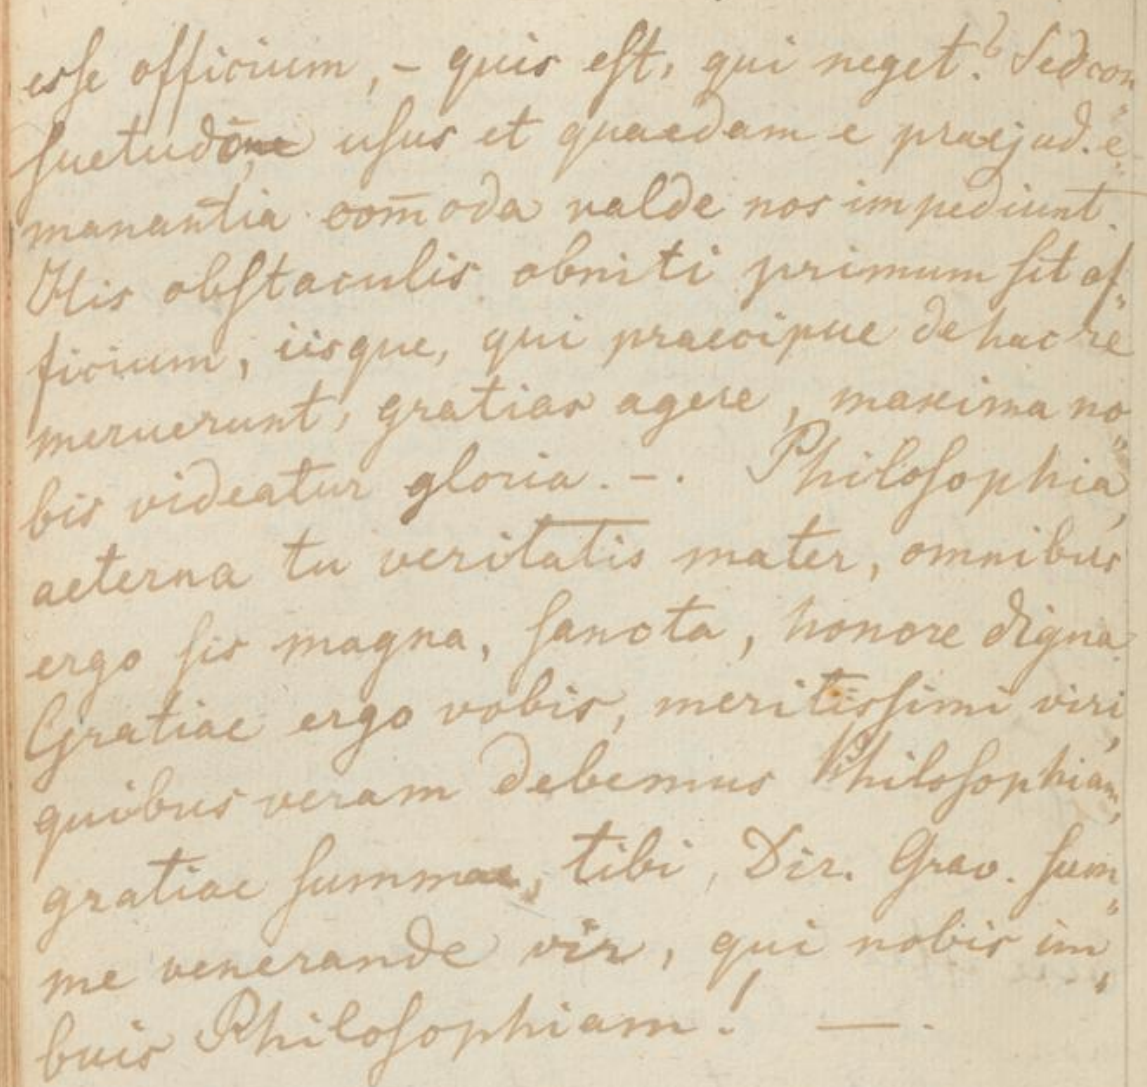 esse officium, – quis est, qui neget? Sed con„
suetudōne usus et quaedam e praejud. e„
manantia com̄oda valde nos impediunt.
His obstaculis obniti primum sit of„
ficium, iisque, qui praecipue de hac re
meruerunt, gratias agere, maxima no„
bis videatur gloria. –. Philosophia,
aeterna tu veritatis mater, omnibus
ergo sis magna, sancta, honore digna.
Gratiae ergo vobis, meritissimi viri,
quibus veram debemus Philosophiam,
gratiae summae, tibi, Dir. Grav. sum„
me venerande vir, qui nobis im„
buis Philosophiam! —.